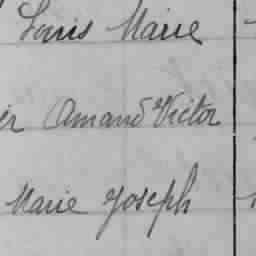 Louis Marie
er Amand Victor
Marie Joseph